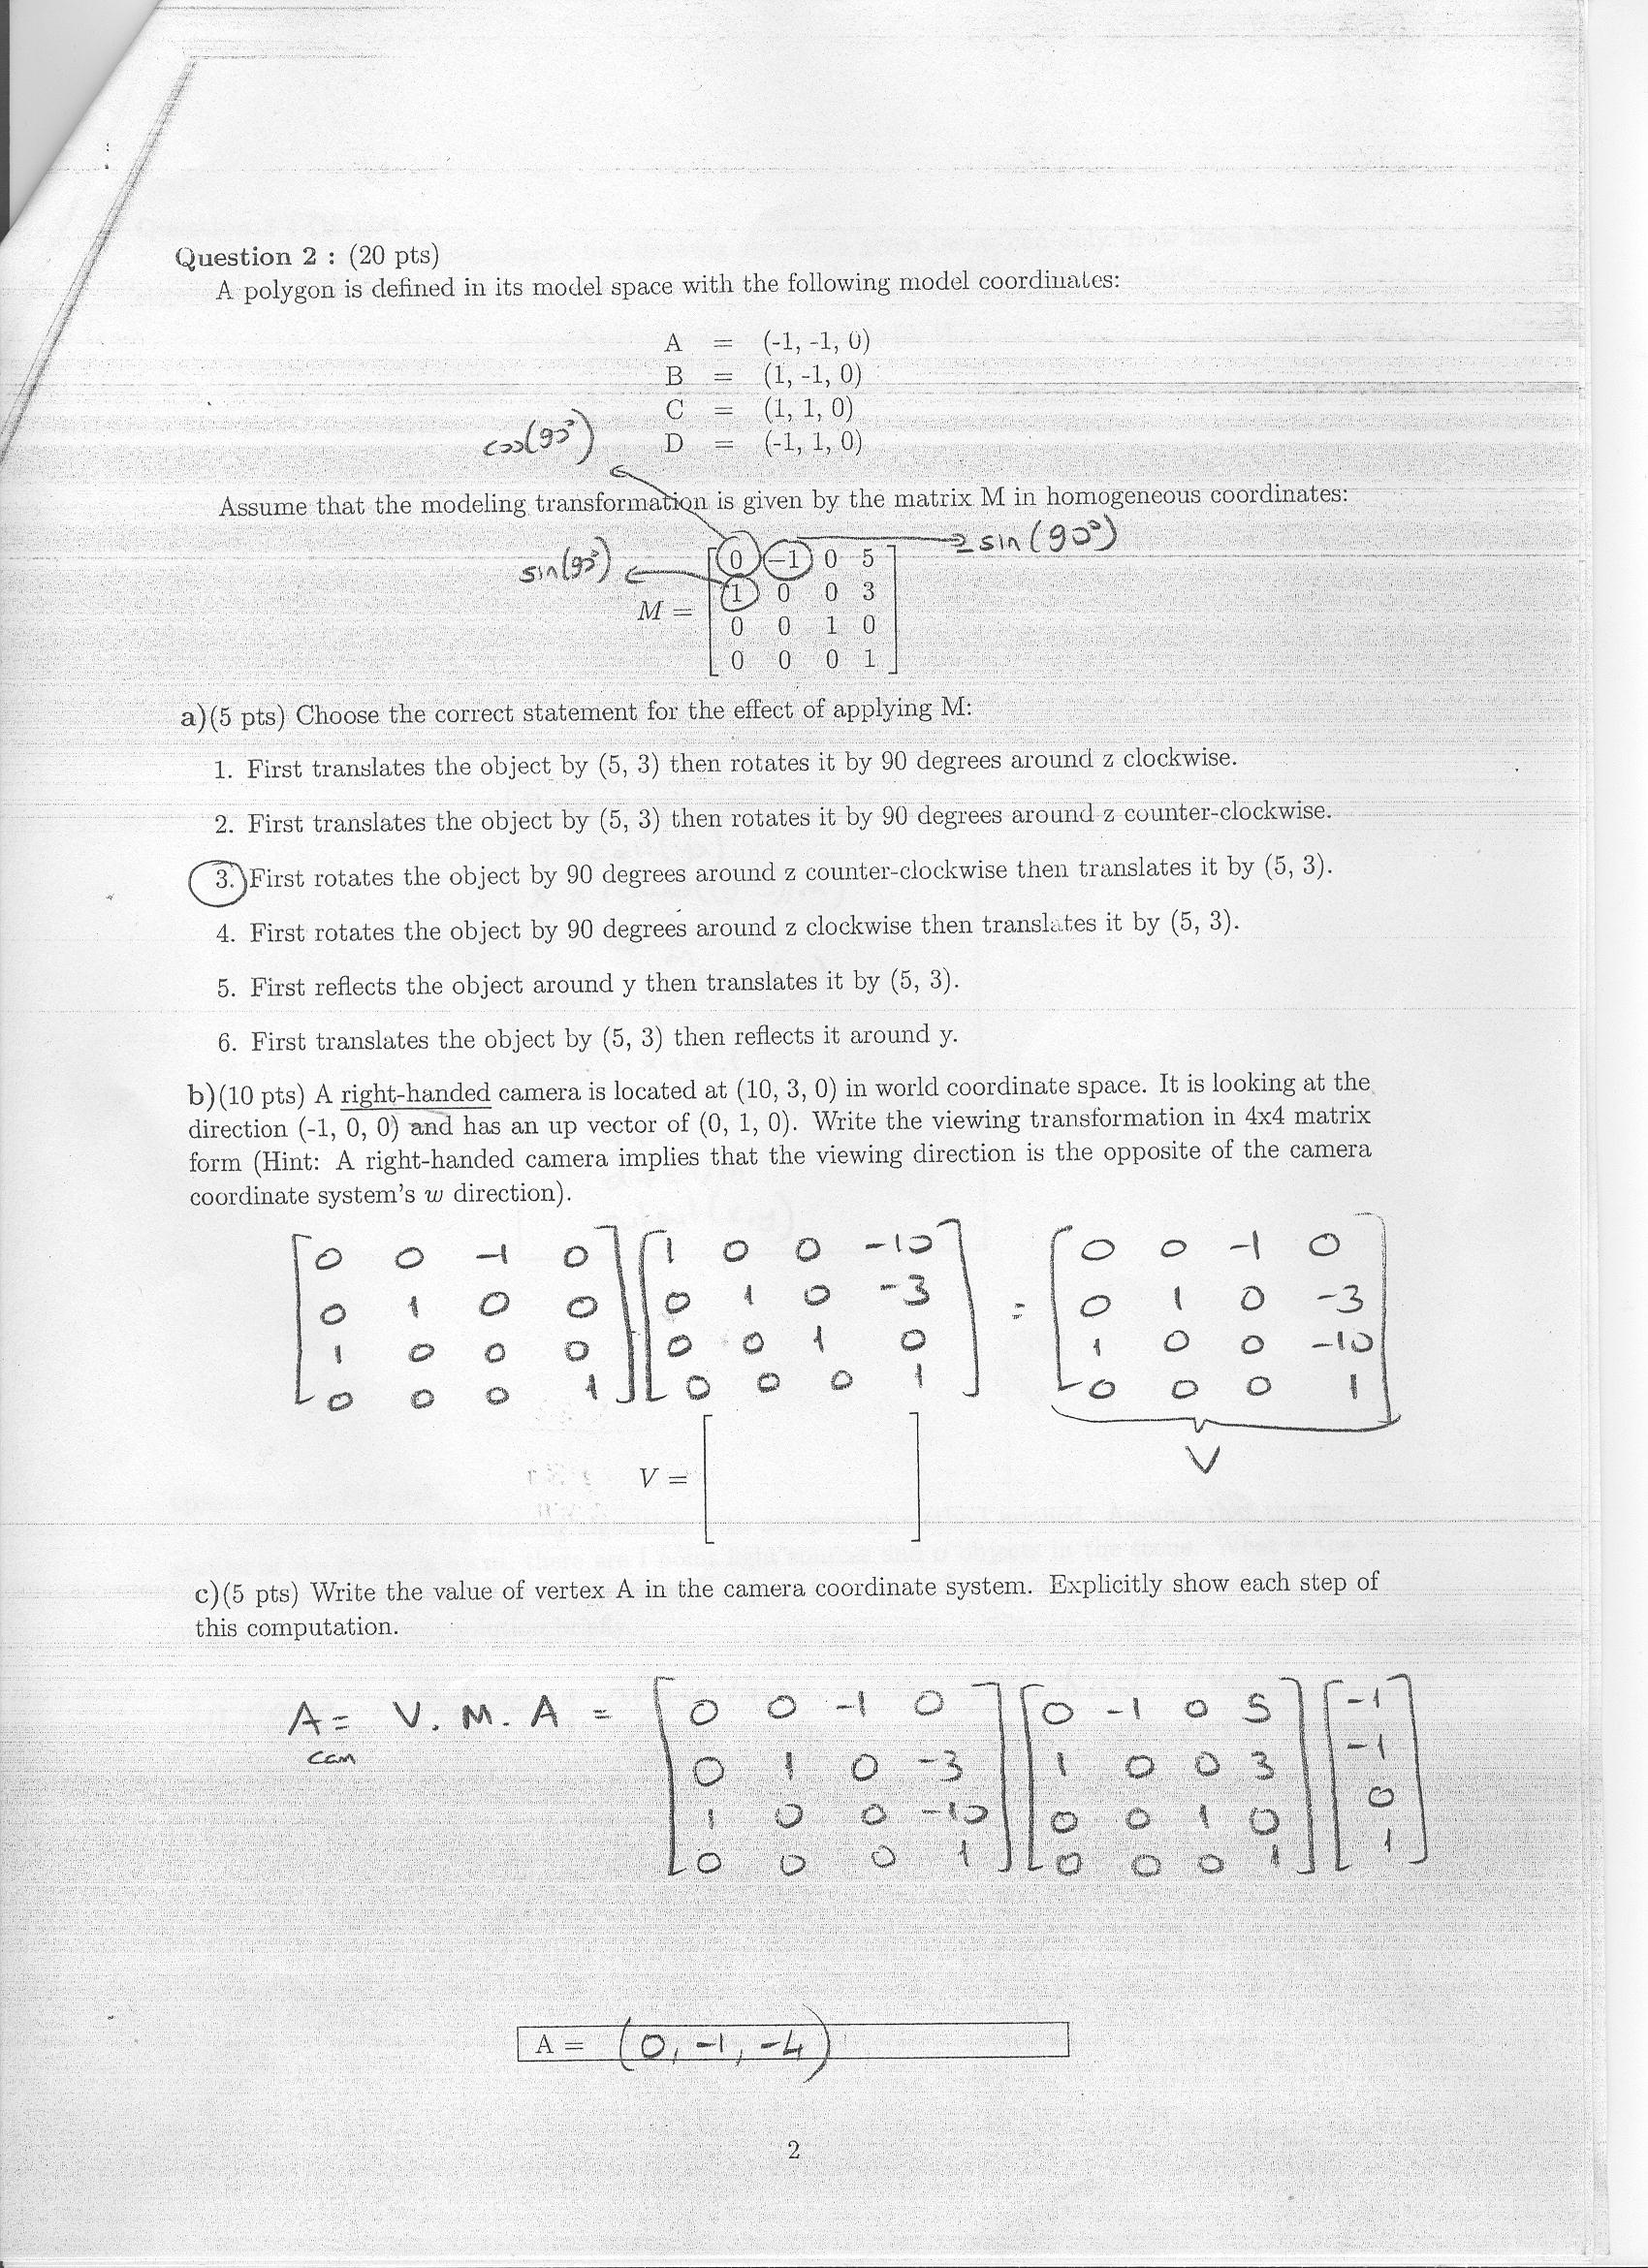 Question 2 : (20 pts)
A polygon is defined in its model space with the following model coordinates:
A = (-1, -1, 0)
B = (1, -1, 0)
C = (1, 1, 0)
D = (-1, 1, 0)
cos(90°)
Assume that the modeling transformation is given by the matrix M in homogeneous coordinates:
sin(90°)
sin(90°)
M =
0 -1 0 5
1 0 0 3
0 0 1 0
0 0 0 1
a)(5 pts) Choose the correct statement for the effect of applying M:
1. First translates the object by (5, 3) then rotates it by 90 degrees around z clockwise.
2. First translates the object by (5, 3) then rotates it by 90 degrees around z counter-clockwise.
3. First rotates the object by 90 degrees around z counter-clockwise then translates it by (5, 3).
4. First rotates the object by 90 degrees around z clockwise then translates it by (5, 3).
5. First reflects the object around y then translates it by (5, 3).
6. First translates the object by (5, 3) then reflects it around y.
b)(10 pts) A right-handed camera is located at (10, 3, 0) in world coordinate space. It is looking at the
direction (-1, 0, 0) and has an up vector of (0, 1, 0). Write the viewing transformation in 4x4 matrix
form (Hint: A right-handed camera implies that the viewing direction is the opposite of the camera
coordinate system's w direction).
0 0 -1 0 1 0 0 -10 0 0 -1 0
0 1 0 0 0 1 0 -3 = 0 1 0 -3
1 0 0 0 0 0 1 0 1 0 0 -10
0 0 0 1 0 0 0 1 0 0 0 1
V
V =
c)(5 pts) Write the value of vertex A in the camera coordinate system. Explicitly show each step of
this computation.
A = V. M. A = 0 0 -1 0 0 -1 0 5 -1
cam 0 1 0 -3 1 0 0 3 -1
1 0 0 -10 0 0 1 0 0
0 0 0 1 0 0 0 1 1
A = (0, -1, -4)
2